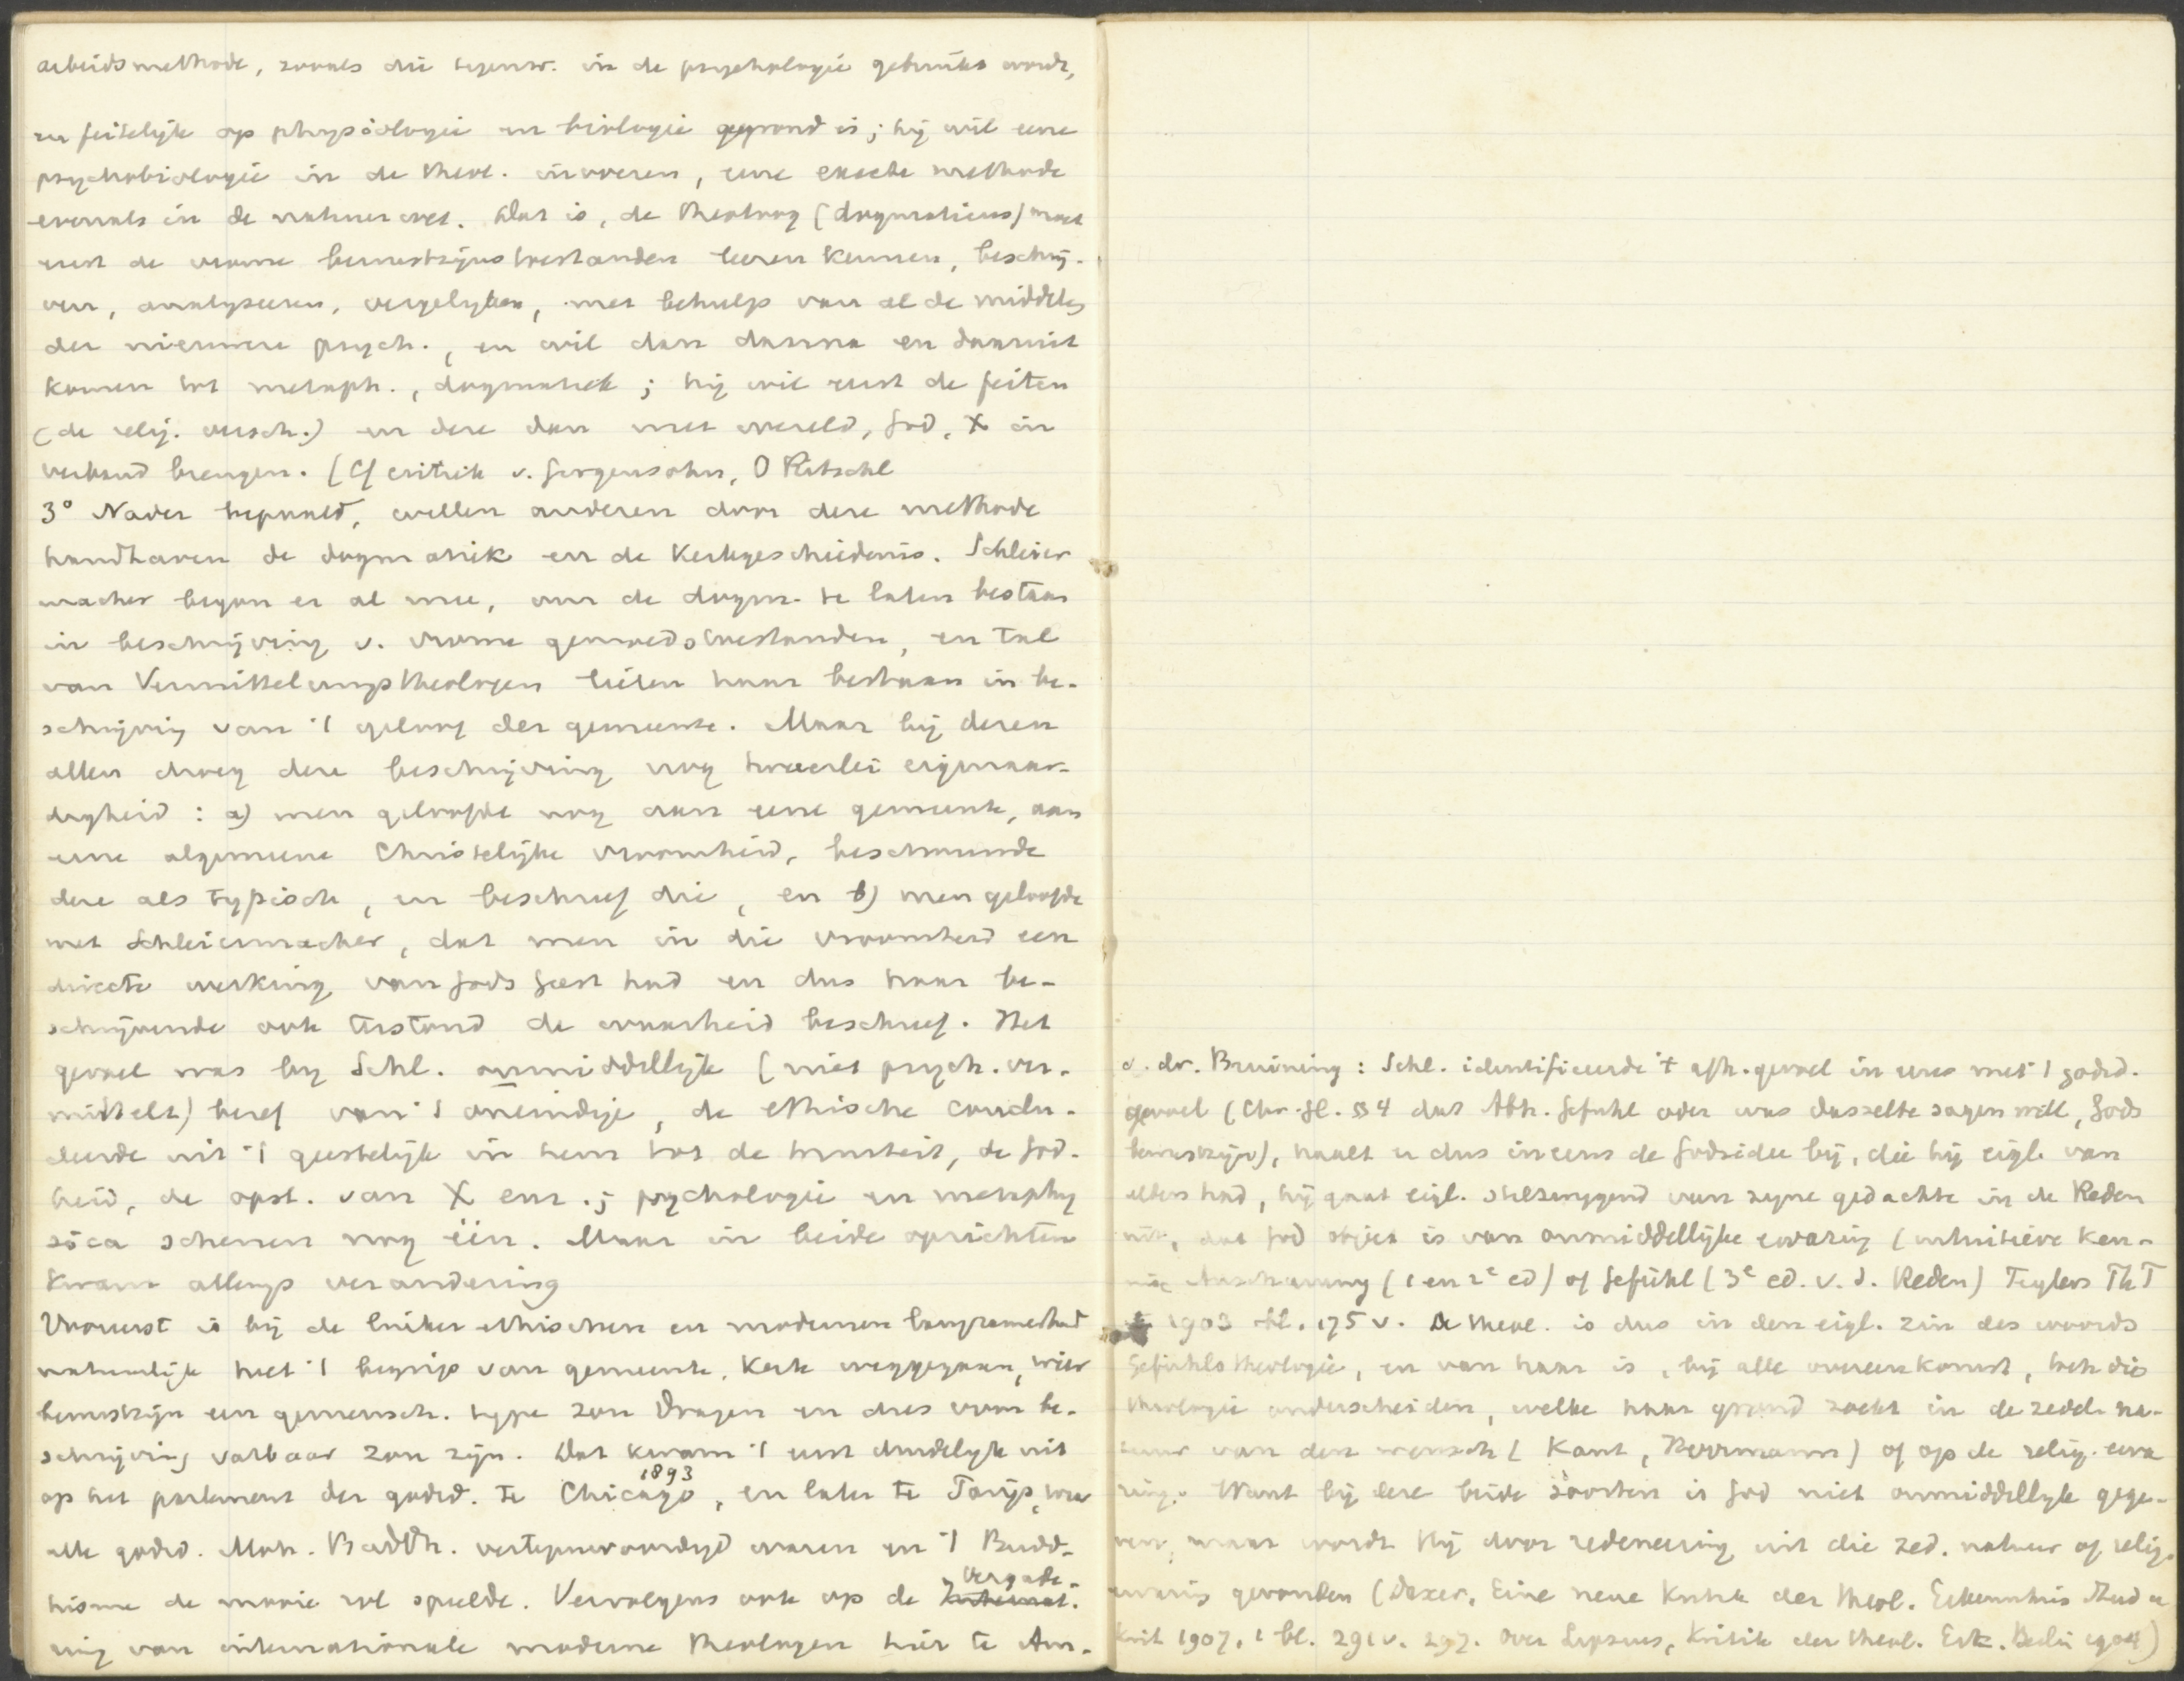 arbeidsmethode, zooals die tegenw. in de psychologie gebruikt wordt,
en feitelijk op physiologie en biologie gegrond is; hij wil eene
psychobiologie in de theol. invoeren, eene exacte methode
evenals in de natuurwet. Dat is, de theoloog (dogmaticus) moet
eerst de vrome bewustzijnstoestanden leeren kennen, beschrij-
ven, analyseeren, vergelijken, met behulp van al de middelen
der nieuwere psych., en wil dan daarna en daaruit
komen tot metaph., dogmatiek; hij wil eerst de feiten
(de relig. versch.) en deze dan met wereld, God, X in
verband brengen. (Cf critiek v. Girgensohn, O Ritschl
3° Nader bepaald, willen anderen door deze methode
handhaven de dogmatiek en de Kerkgeschiedenis. Schleier
macher begon er al mee, om de dogm. te laten bestaan
in beschrijving v. vrome gemoedstoestanden, en tal
van Vermittelungstheologen lieten haar bestaan in be-
schrijving van 't geloof der gemeente. Maar bij dezen
allen droeg deze beschrijving nog tweeërlei eigenaar-
digheid : a) men geloofde nog aan eene gemeente, aan
eene algemeene Christelijke vroomheid, beschouwde
deze als typisch, en beschreef die, en b) men geloofde
met Schleiermacher, dat men in die vroomheid een
directe werking van Gods Geest had en dus haar be-
schrijvende ook terstond de waarheid beschreef. Het
gevoel was bij Schl. onmiddellijk (niet psych. ver-
mittelt) besef van 't oneindige, de ethische conclu-
deerde uit 't geestelijk in hem tot de triniteit, de God-
heid, de opst. van X enz.; psychologie en metaphy
sica schenen nog één. Maar in beide opzichten
kwam allengs verandering
Vooreerst is bij de linker ethischen en modernen langzamerhand
natuurlijk heel 't begrip van gemeente, Kerk weggegaan, wier
bewustzijn een gemeensch. type zou dragen en dus voor be-
schrijving vatbaar zou zijn. Dat kwam 't eerst duidelijk uit
op het parlement der godsd. te Chicago 1893, en later te Parijs, waar
alle godsd. Moh. Buddh. vertegenwoordigd waren en 't Budd-
hisme de mooie rol speelde. Vervolgens ook op de Vergade-
ring van internationale moderne theologen hier te Am-
v. dr. Bruining : Schl. identificeerde 't afh. gevoel in eens met 't godsd.
gevoel (Chr. Gl. §4 das Abh. Gefuhl oder was dasselbe sagen will, Gods
bewustzijn), haalt er dus ineens de Godsidee bij, die hij eigl. van
elders had, hij gaat eigl. stilzwijgend van zijne gedachte in de Reden
uit, dat God object is van onmiddellijke ervaring (intuitieve ken-
nis Anschauung (1 en 2e ed) of Gefühl (3e ed. v. d. Reden) Teylers Th T
1903 bl. 175 v. De theol. is dus in den eigl. zin des woords
Gefühlstheologie, en van haar is, bij alle overeenkomst, toch die
theologie onderscheiden, welke haar grond zoekt in de zedel. na-
tuur van den mensch (Kant, Herrmann) of op de relig. erva
ring. Want bij deze beide soorten is God niet onmiddellijk gege-
ven, maar wordt Hij door redeneering uit die zed. natuur of relig.
ervaring gevonden (Daxer, Eine neue Kritik der theol. Erkenntnis Stud u
Krit 1907, 1 bl. 291 v. 297. Over Lipsius, Kritik der theol. Erk. Berlin 1904)